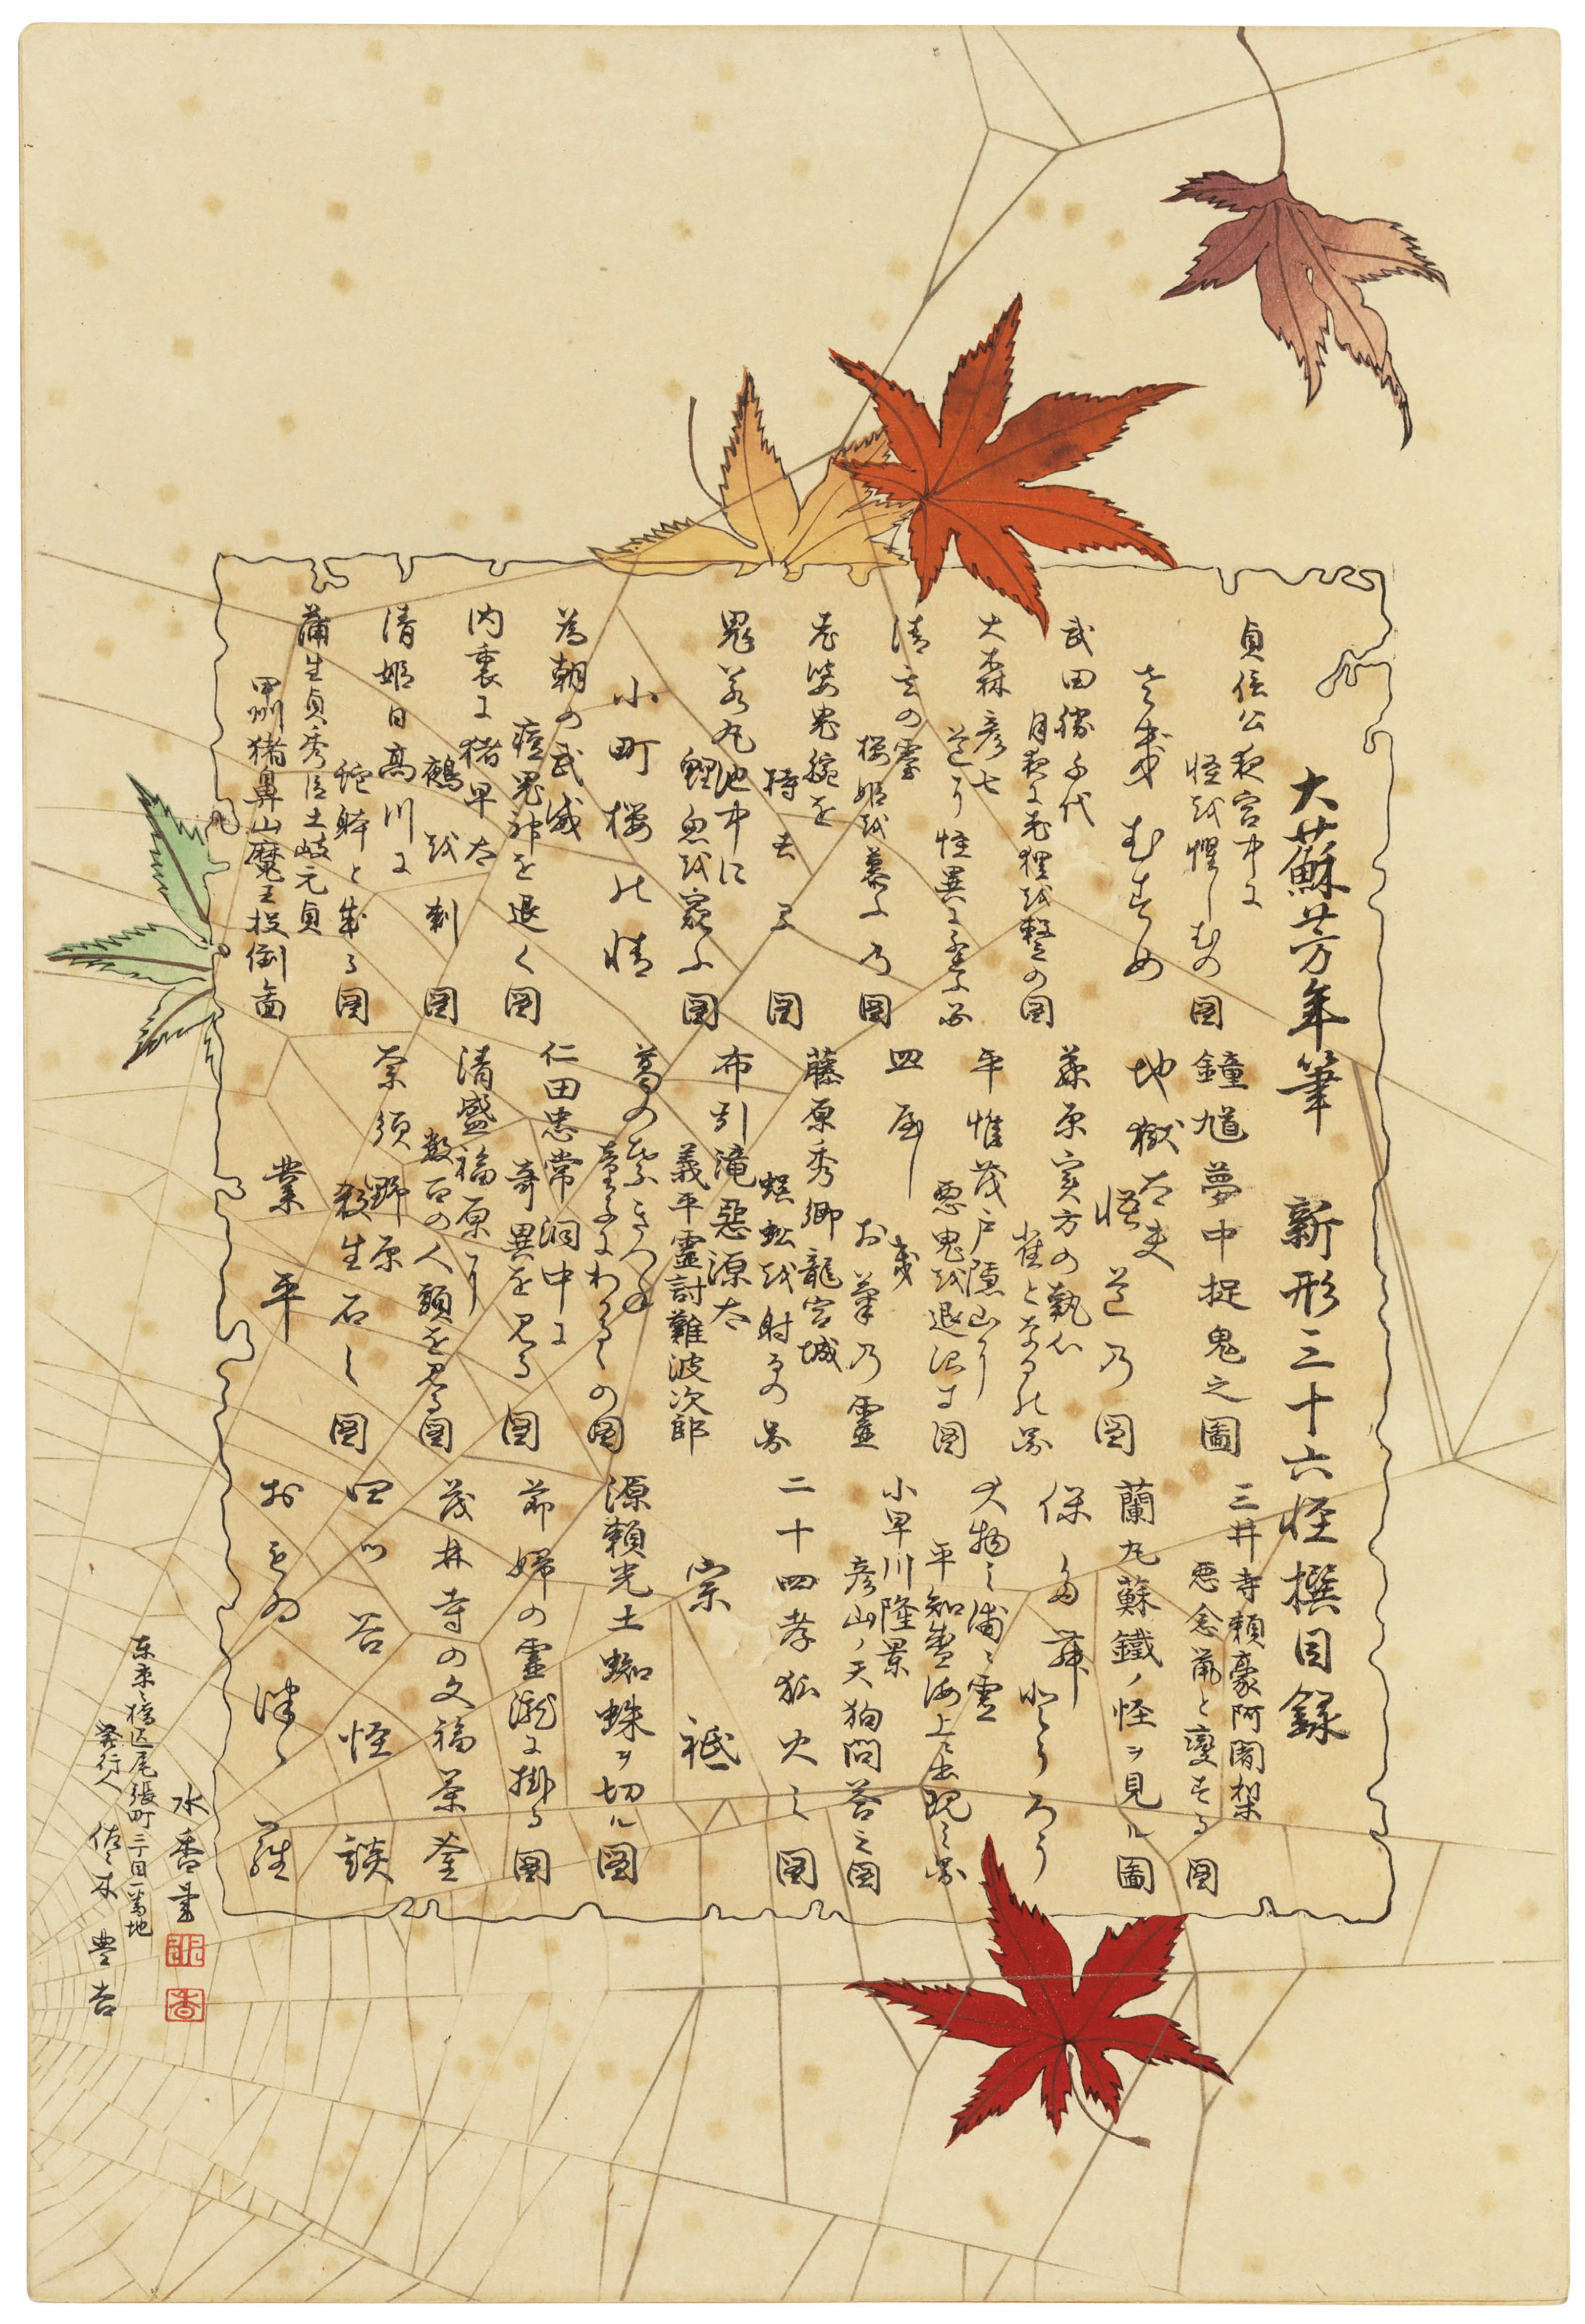 大蘇芳年筆 新形三十六怪撰目録
貞信公夜宮中に
怪を懼しむの図
さぎむすめ
武田勝千代
月夜に老狸を撃の図
大森彦七
道に怪異に逢ふ図
清玄の霊
桜姫を慕ふ乃図
老婆鬼腕を
持去る図
鬼若丸池中に
鯉魚を窺ふ図
小町桜の精
為朝の武威
痘鬼神を退く図
内裏に猪早太
鵺を刺図
清姫日高川に
蛇躰と成る図
蒲生貞秀臣土岐元貞
甲州猪鼻山魔王投倒図
鐘馗夢中捉鬼之圖
地獄太夫
悟道乃図
藤原実方の執心
雀となるの図
平惟茂戸隠山に
悪鬼を退治す図
皿やしき
お菊乃霊
藤原秀郷龍宮城
蜈蚣を射るの図
布引滝悪源太
義平霊討難波次郎
葛の葉きつね
童子にわかるゝの図
仁田忠常洞中に
奇異を見る図
清盛福原に
数百の人頭を見る図
奈須野原
殺生石之図
業平
三井寺頼豪阿闍梨
悪念鼠と変する図
蘭丸蘇鐵ノ怪ヲ見ル圖
ほたむとうろう
大物之浦ニ霊
平知盛海上ニ出現之図
小早川隆景
彦山ノ天狗問答之図
二十四孝狐火之図
宗祇
源頼光土蜘蛛ヲ切ル図
節婦の霊瀧に掛る図
茂林寺の文福茶釜
四ツ谷怪談
おもゐつゝら
水香筆
水香
東京々橋区尾張町二丁目一番地
発行人 佐々木豊吉